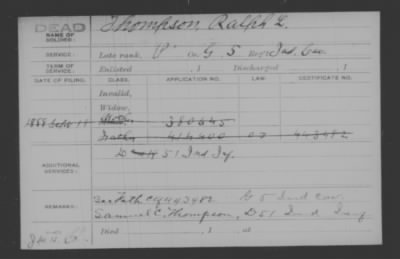 DEAD
NAME OF SOLDIER: Thompson Ralph E.
SERVICE: Late rank, P Co. G 5 Reg't Ind. Cav.
TERM OF SERVICE: Enlisted , 1 Discharged , 1
DATE OF FILING. CLASS. APPLICATION NO. LAW. CERTIFICATE NO.
Invalid,
Widow,
1888 Sept 18 380645
Father 414400 443482
ADDITIONAL SERVICES: D 51 Ind Inf.
REMARKS: See Fath C 443482. G 5 Ind Cav.
Samuel C. Thompson, D 51 Ind Inf
Died , 1 , at